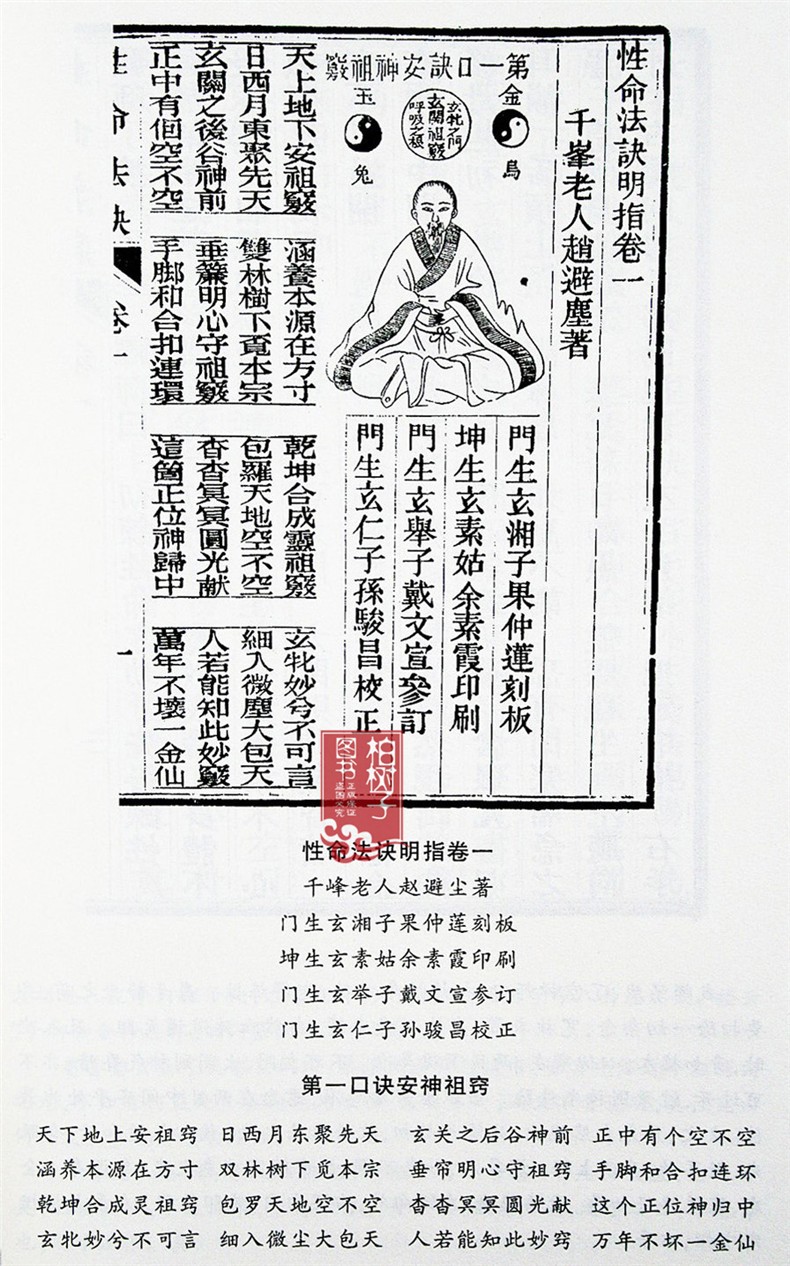 性命法訣明指卷一
千峯老人趙避塵著
第一口訣安神祖竅
金烏
玄牝之門
玄關祖竅
呼吸之根
玉兔
門生玄湘子果仲蓮刻板
坤生玄素姑余素霞印刷
門生玄舉子戴文宣參訂
門生玄仁子孫駿昌校正
天上地下安祖竅 涵養本源在方寸 乾坤合成靈祖竅 玄牝妙兮不可言
日西月東聚先天 雙林樹下覔本宗 包羅天地空不空 細入微塵大包天
玄關之後谷神前 垂簾明心守祖竅 杳杳冥冥圓光献 人若能知此妙竅
正中有個空不空 手脚和合扣連環 這箇正位神歸中 萬年不壞一金仙
性命法訣 卷一 一
柏树子
图书
性命法诀明指卷一
千峰老人赵避尘著
门生玄湘子果仲莲刻板
坤生玄素姑余素霞印刷
门生玄举子戴文宣参订
门生玄仁子孙骏昌校正
第一口诀安神祖窍
天下地上安祖窍 日西月东聚先天 玄关之后谷神前 正中有个空不空
涵养本源在方寸 双林树下觅本宗 垂帘明心守祖窍 手脚和合扣连环
乾坤合成灵祖窍 包罗天地空不空 香香冥冥圆光献 这个正位神归中
玄牝妙兮不可言 细入微尘大包天 人若能知此妙窍 万年不坏一金仙